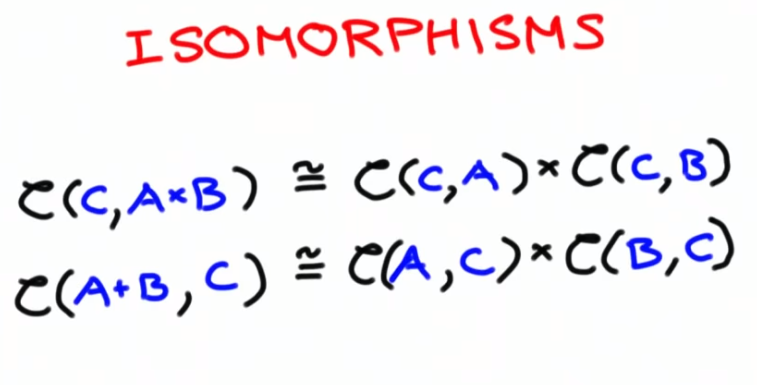 ISOMORPHISMS
C(C, A×B) ≅ C(C, A) × C(C, B)
C(A+B, C) ≅ C(A, C) × C(B, C)